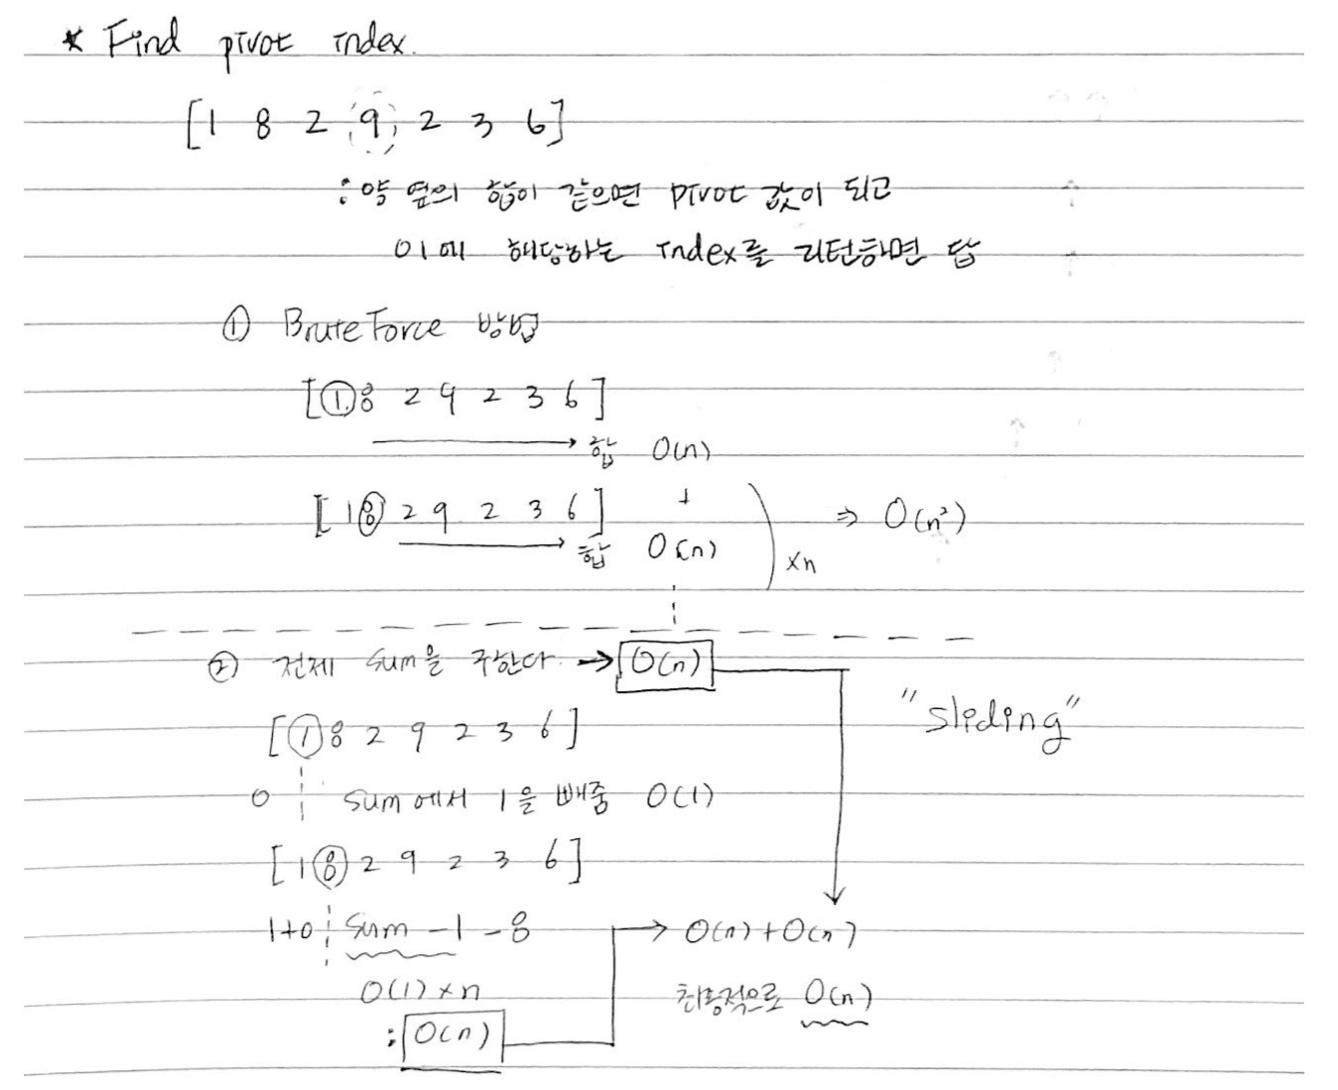 * Find pivot index.
[1 8 2 9 2 3 6]
: 양 옆의 합이 같으면 pivot 값이 되고
이에 해당하는 index를 리턴하면 답
① Brute Force 방법
[① 8 2 9 2 3 6]
→ 합 O(n)
[1 ⑧ 2 9 2 3 6] +
→ 합 O(n) ×n ⇒ O(n²)
② 전체 sum을 구한다 → O(n)
"sliding"
[① 8 2 9 2 3 6]
0 sum에서 1을 빼줌 O(1)
[1 ⑧ 2 9 2 3 6]
1+0 sum - 1 - 8 → O(n) + O(n)
O(1) × n 최종적으로 O(n)
: O(n)